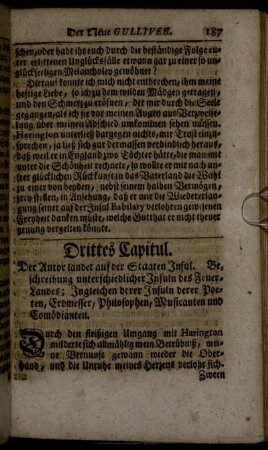 Der Neue GULLIVER. 187
schen, oder habt ihr euch durch die beständige Folge eurer
erlittenen Unglücksfälle etwann gar zu einer so un-
glückseeligen Melancholey gewöhnet?
Hierauf konte ich mich nicht entbrechen, ihm meine
heftige Liebe, so ich zu dem wilden Mädgen getragen,
und den Schmertz zu eröfnen, der mir durch die Seele
gegangen, als ich sie vor meinen Augen aus Verzweife-
lung über meinen Abschied umkommen sehen müssen.
Harington unterließ hingegen nichts, mir Trost einzu-
sprechen, ja ließ sich gar dermassen verbindlich heraus,
daß weil er in England zwo Töchter hätte, die man mit
unter die Schönheit rechnete, so wolte er mit nach un-
serer glücklichen Rückkunft in das Vaterland die Wahl
zu einer von beyden, nebst seinem halben Vermögen,
frey stellen, in Ansehung, daß er mir die Wiedererlan-
gung seiner auf der Insul Babilary verlohren gewesenen
Freyheit danken müste, welche Gutthat er nicht theuer
genung vergelten könnte.
Drittes Capitul.
Der Autor landet auf der Staaten Insul. Be-
schreibung unterschiedlicher Insuln des Feuer-
Landes; Ingleichen derer Insuln derer Poe-
ten, Erdmesser, Philosophen, Musicanten und
Comödianten.
Durch den fleißigen Umgang mit Harington
milderte sich allmählig mein Betrübniß, mei-
ne Vernunft gewann wieder die Ober-
hand, und die Unruhe meines Herzens verlohr sich.
Zween